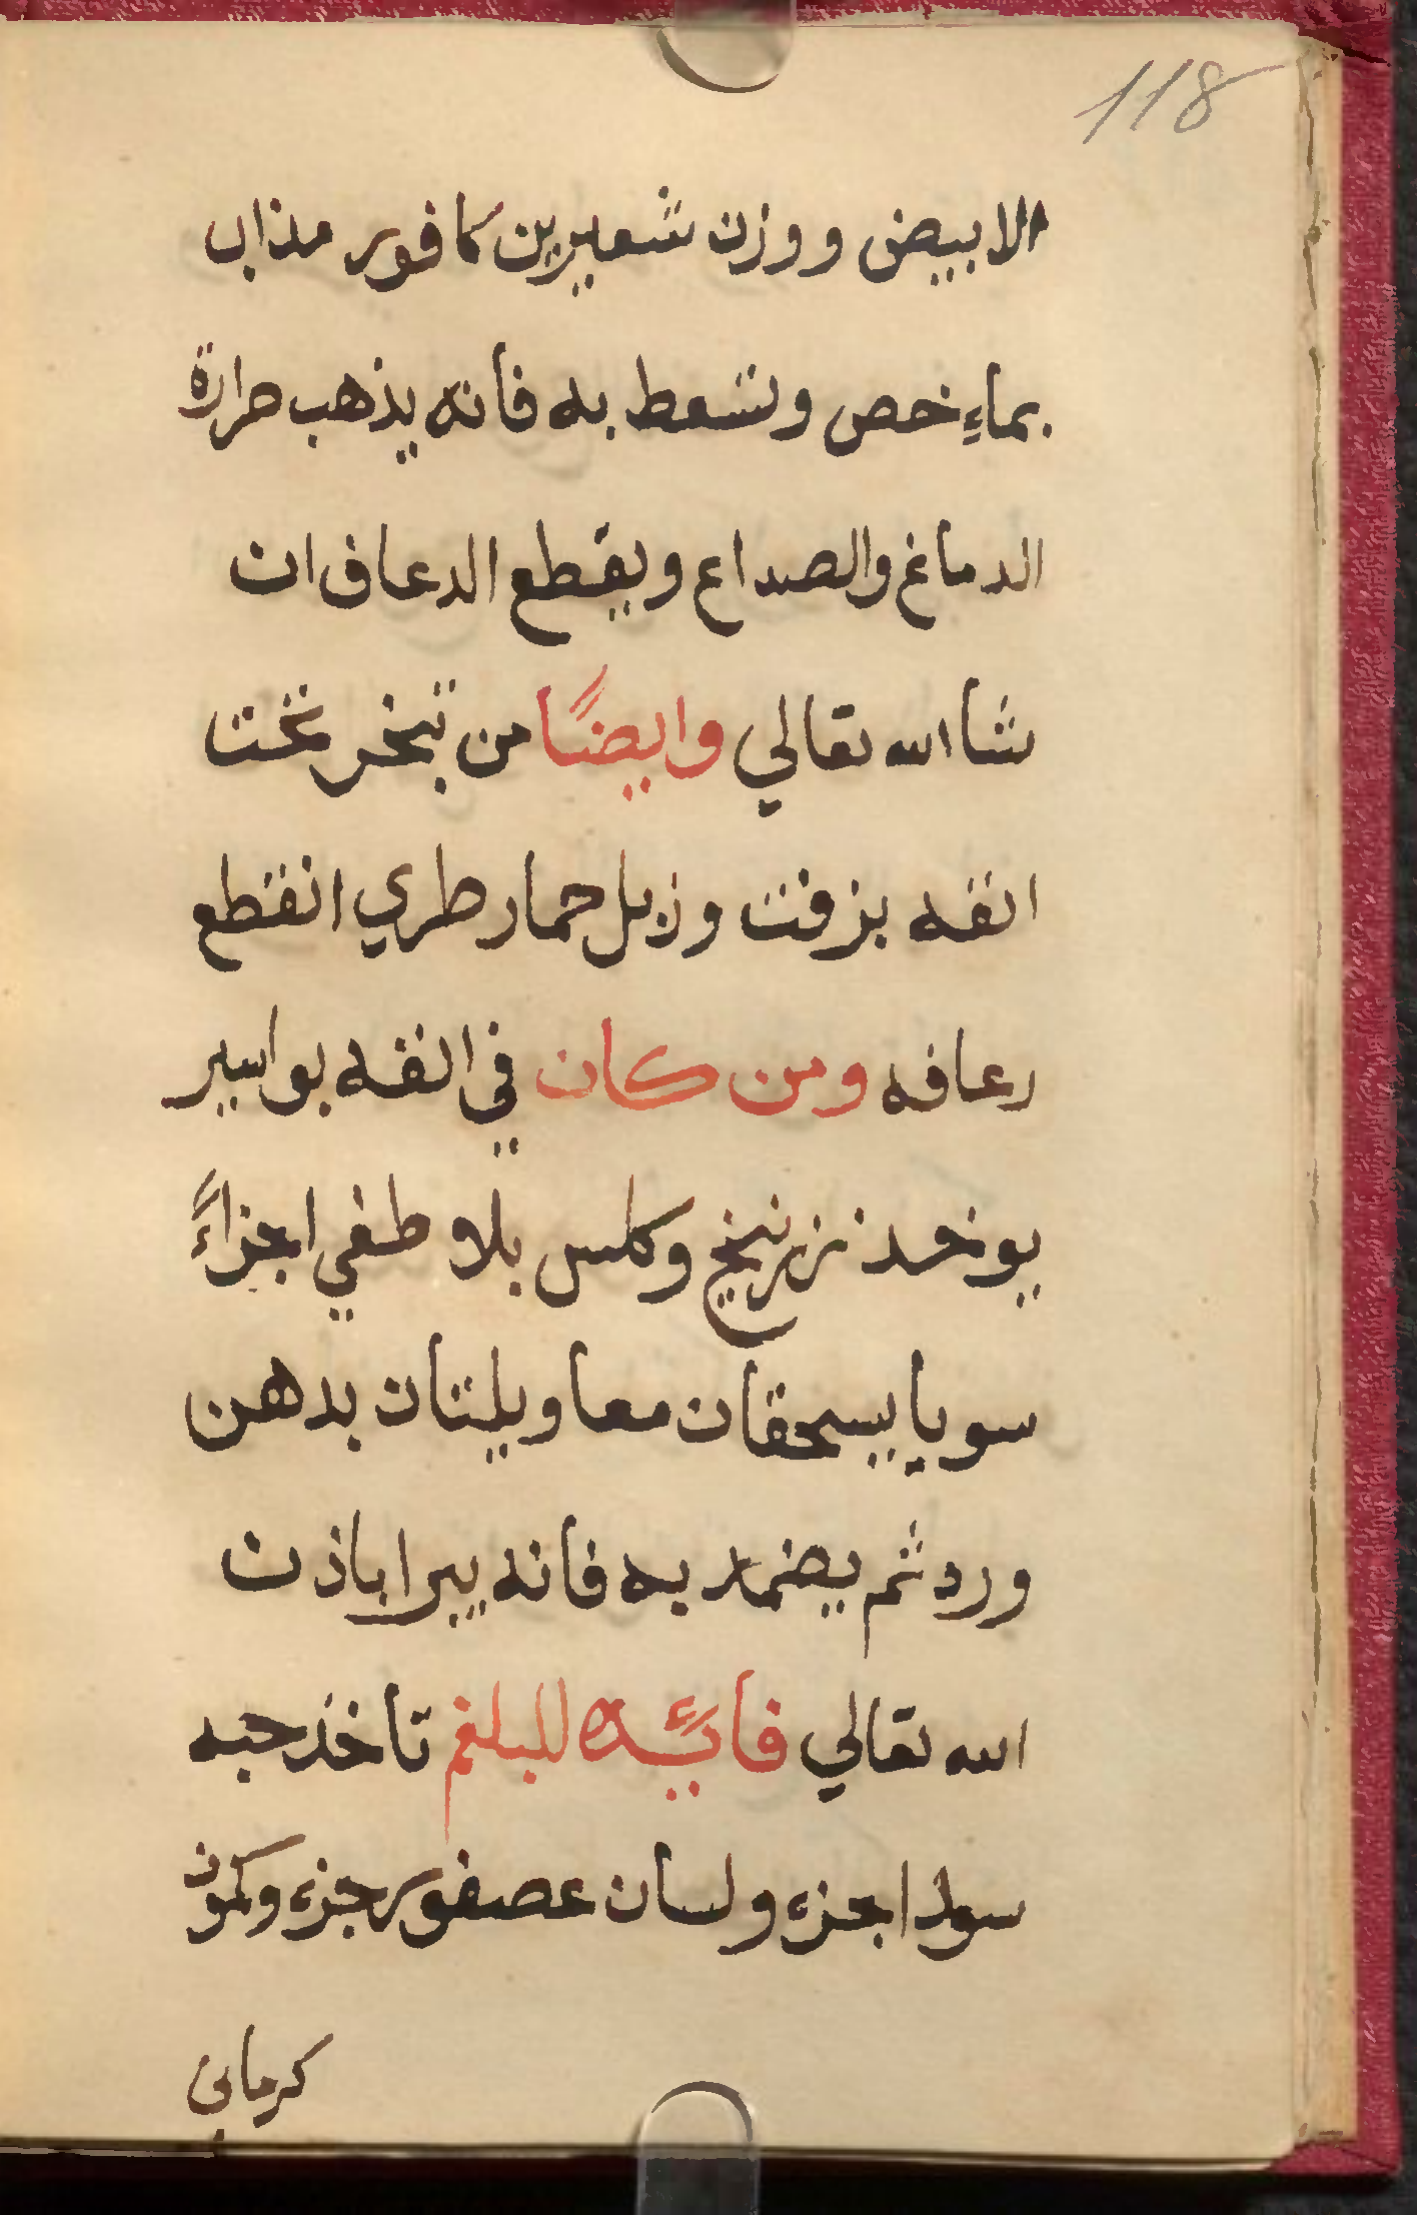 118
الابيض ووزن شعيرين كافور مذاب
بماءِ خص ونسعط به فانه يذهب حرارة
الدماغ والصداع ويقطع الدعاف ان
شا الله تعالي وايضًا من تبخر تحت
انفه بزفت وزبل حمار طري انقطع
رعافه ومن كان في انفه بواسير
يوخد زرنيخ وكلس بلا وطفي اجزاءً
سويا يسحقان معا ويلتان بدهن
ورد ثم يضمد به فانه يبرا باذن
الله تعالي فائيده للبلغم تاخذ حبه
سودا جزء ولسان عصفور جزء وكمون
كرماني